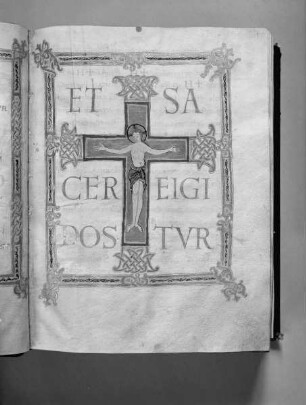 ET SA
CER EIGI
DOS TVR